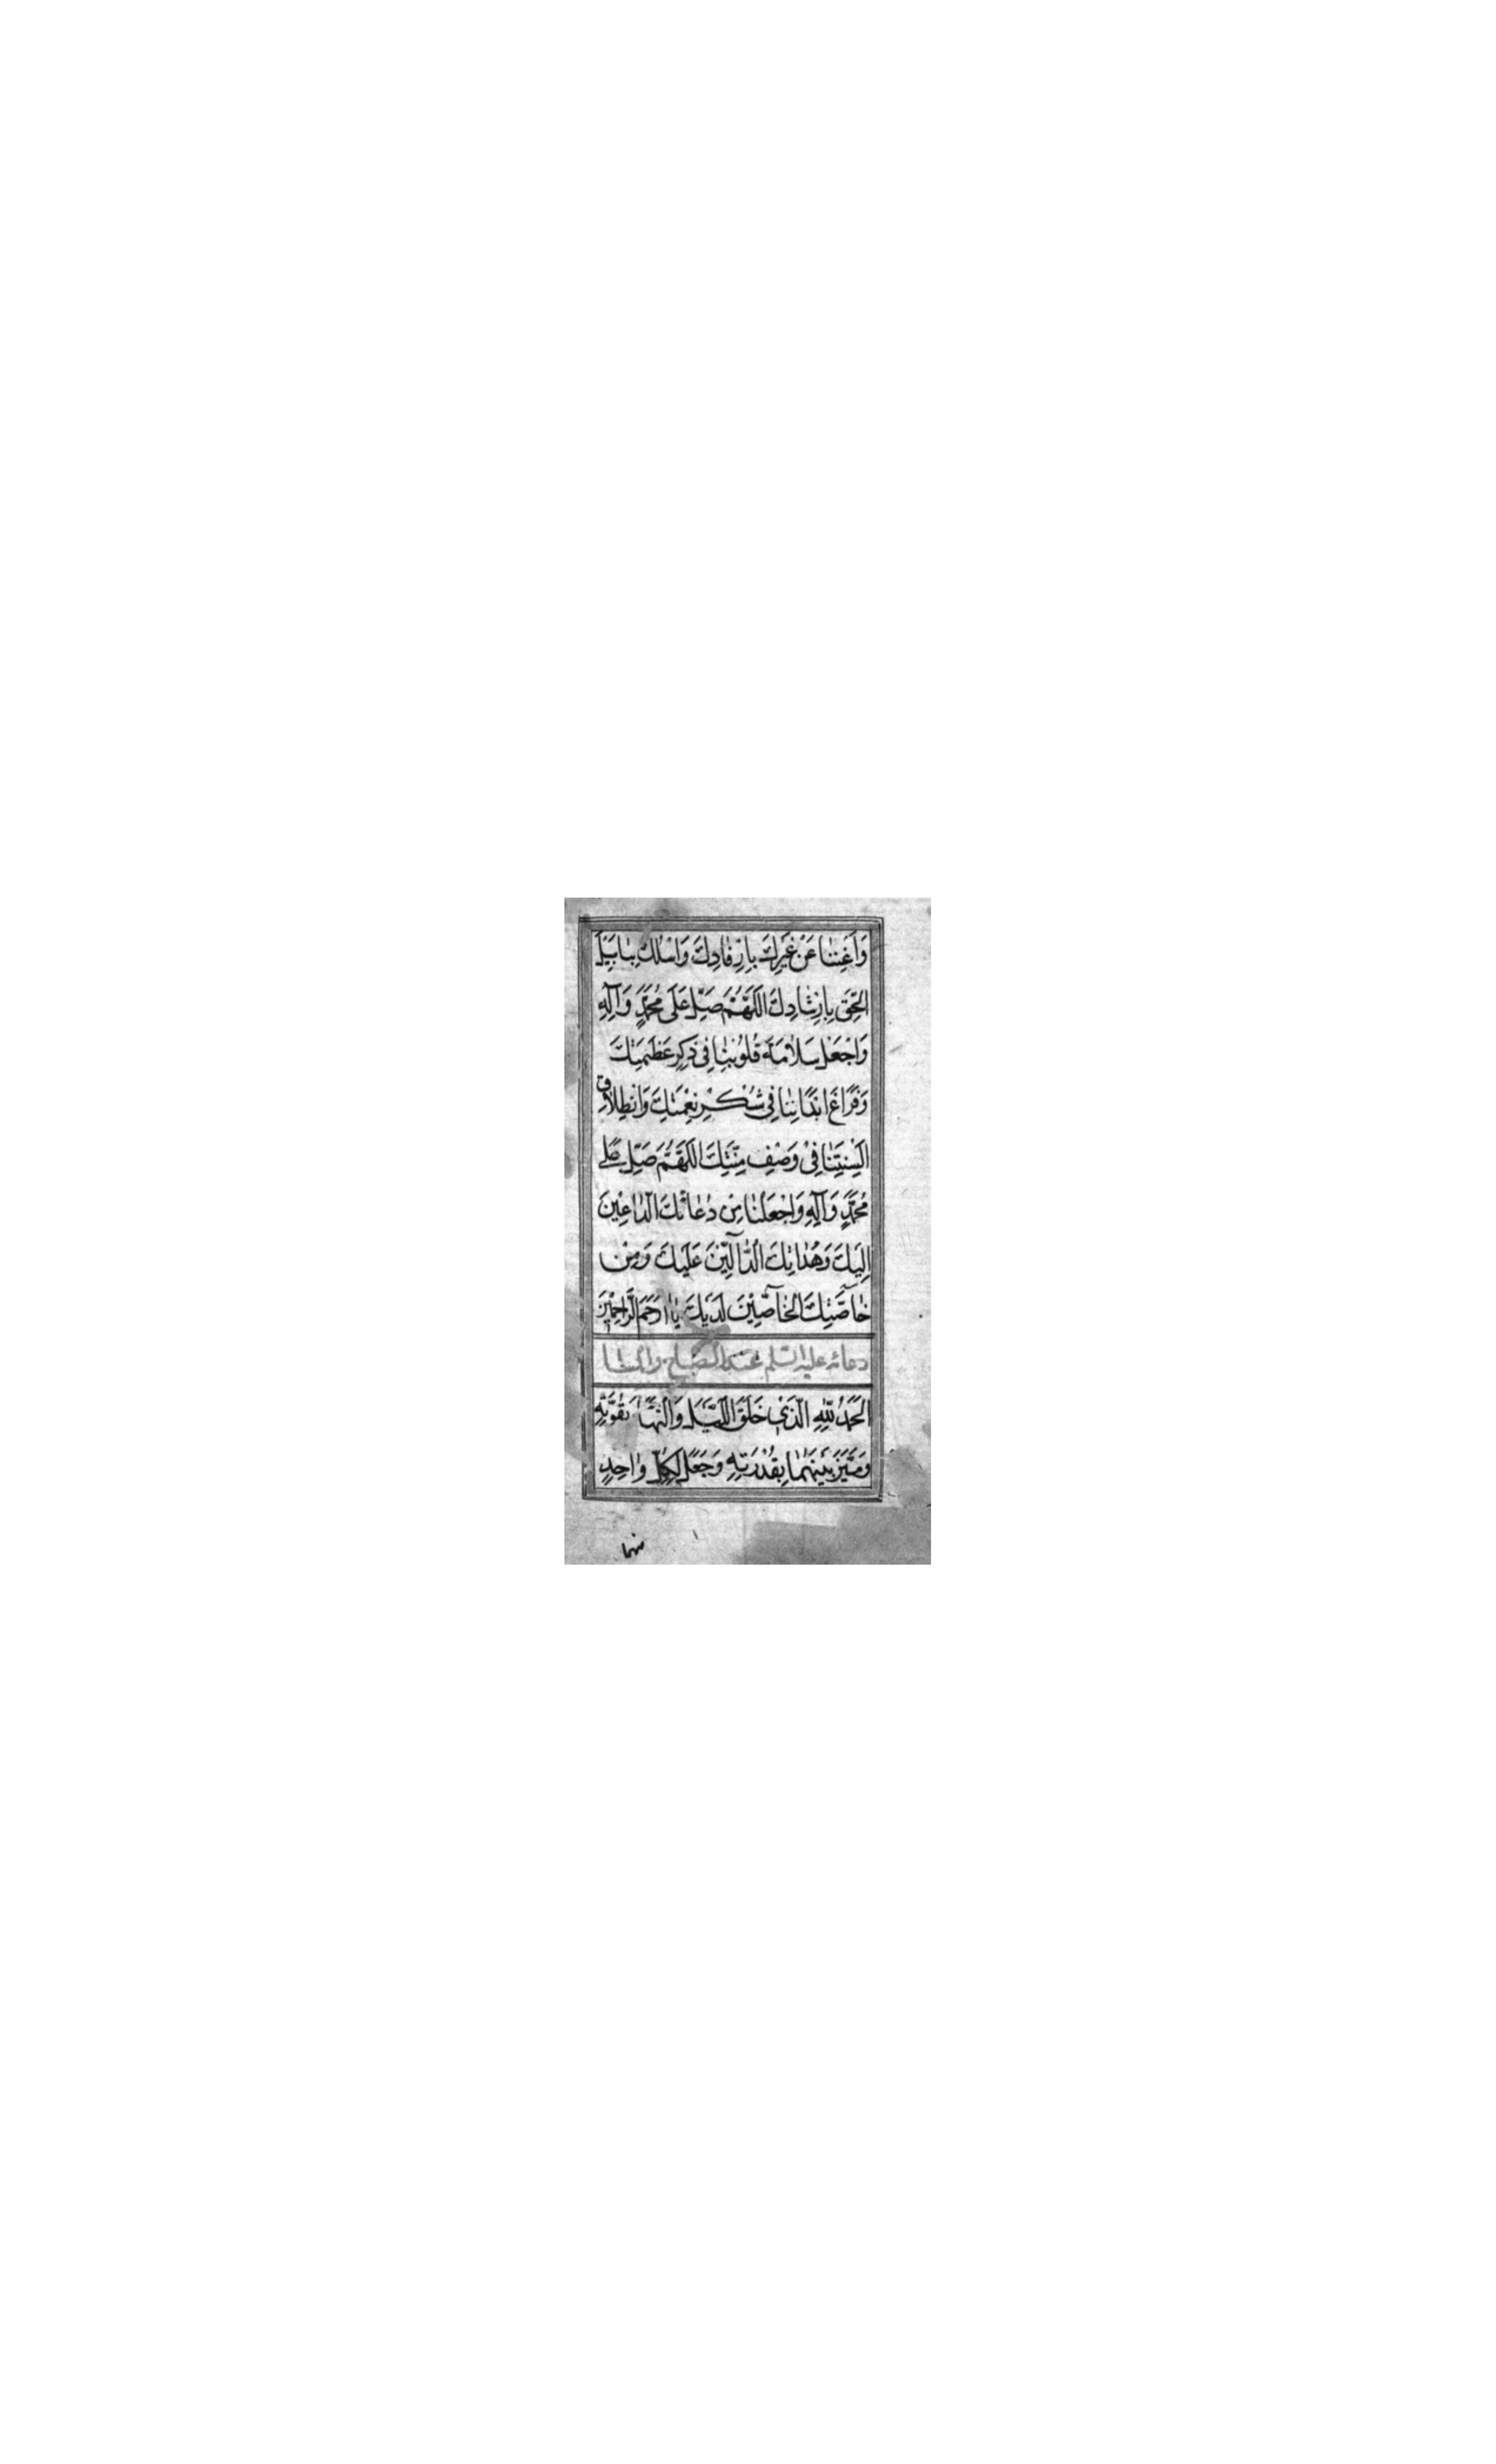 وَاَغْنِنٰا عَنْ غَيْرِكَ بِاِرْفٰادِكَ وَاسْلُكْ بِنٰا سَبيلَ
الْحَقِّ بِاِرْشٰادِكَ اَللّٰهُمَّ صَلِّ عَلٰى مُحَمَّدٍ وَاٰلِهِ
وَاجْعَلْ سَلاٰمَةَ قُلُوبِنٰا فى ذِكْرِ عَظَمَتِكَ
وَفَرٰاغَ اَبْدٰانِنٰا فى شُكْرِ نِعْمَتِكَ وَانْطِلاٰقَ
اَلْسِنَتِنٰا فى وَصْفِ مِنَّتِكَ اَللّٰهُمَّ صَلِّ عَلٰى
مُحَمَّدٍ وَاٰلِهِ وَاجْعَلْنٰا مِنْ دُعٰائِكَ الدّٰاعِينَ
اِلَيْكَ وَهُدٰاتِكَ الدّٰالّينَ عَلَيْكَ وَمِنْ
خٰاصَّتِكَ الْخٰاصّينَ لَدَيْكَ يٰا اَرْحَمَ الرّٰاحِمينَ
دعائه عليه السلم عند الصباح والمسا
اَلْحَمْدُ لِلّٰهِ الَّذى خَلَقَ اللَّيْلَ وَالنَّهٰارَ بِقُوَّتِهِ
وَمَيَّزَ بَيْنَهُمٰا بِقُدْرَتِهِ وَجَعَلَ لِكُلِّ وٰاحِدٍ
منهما